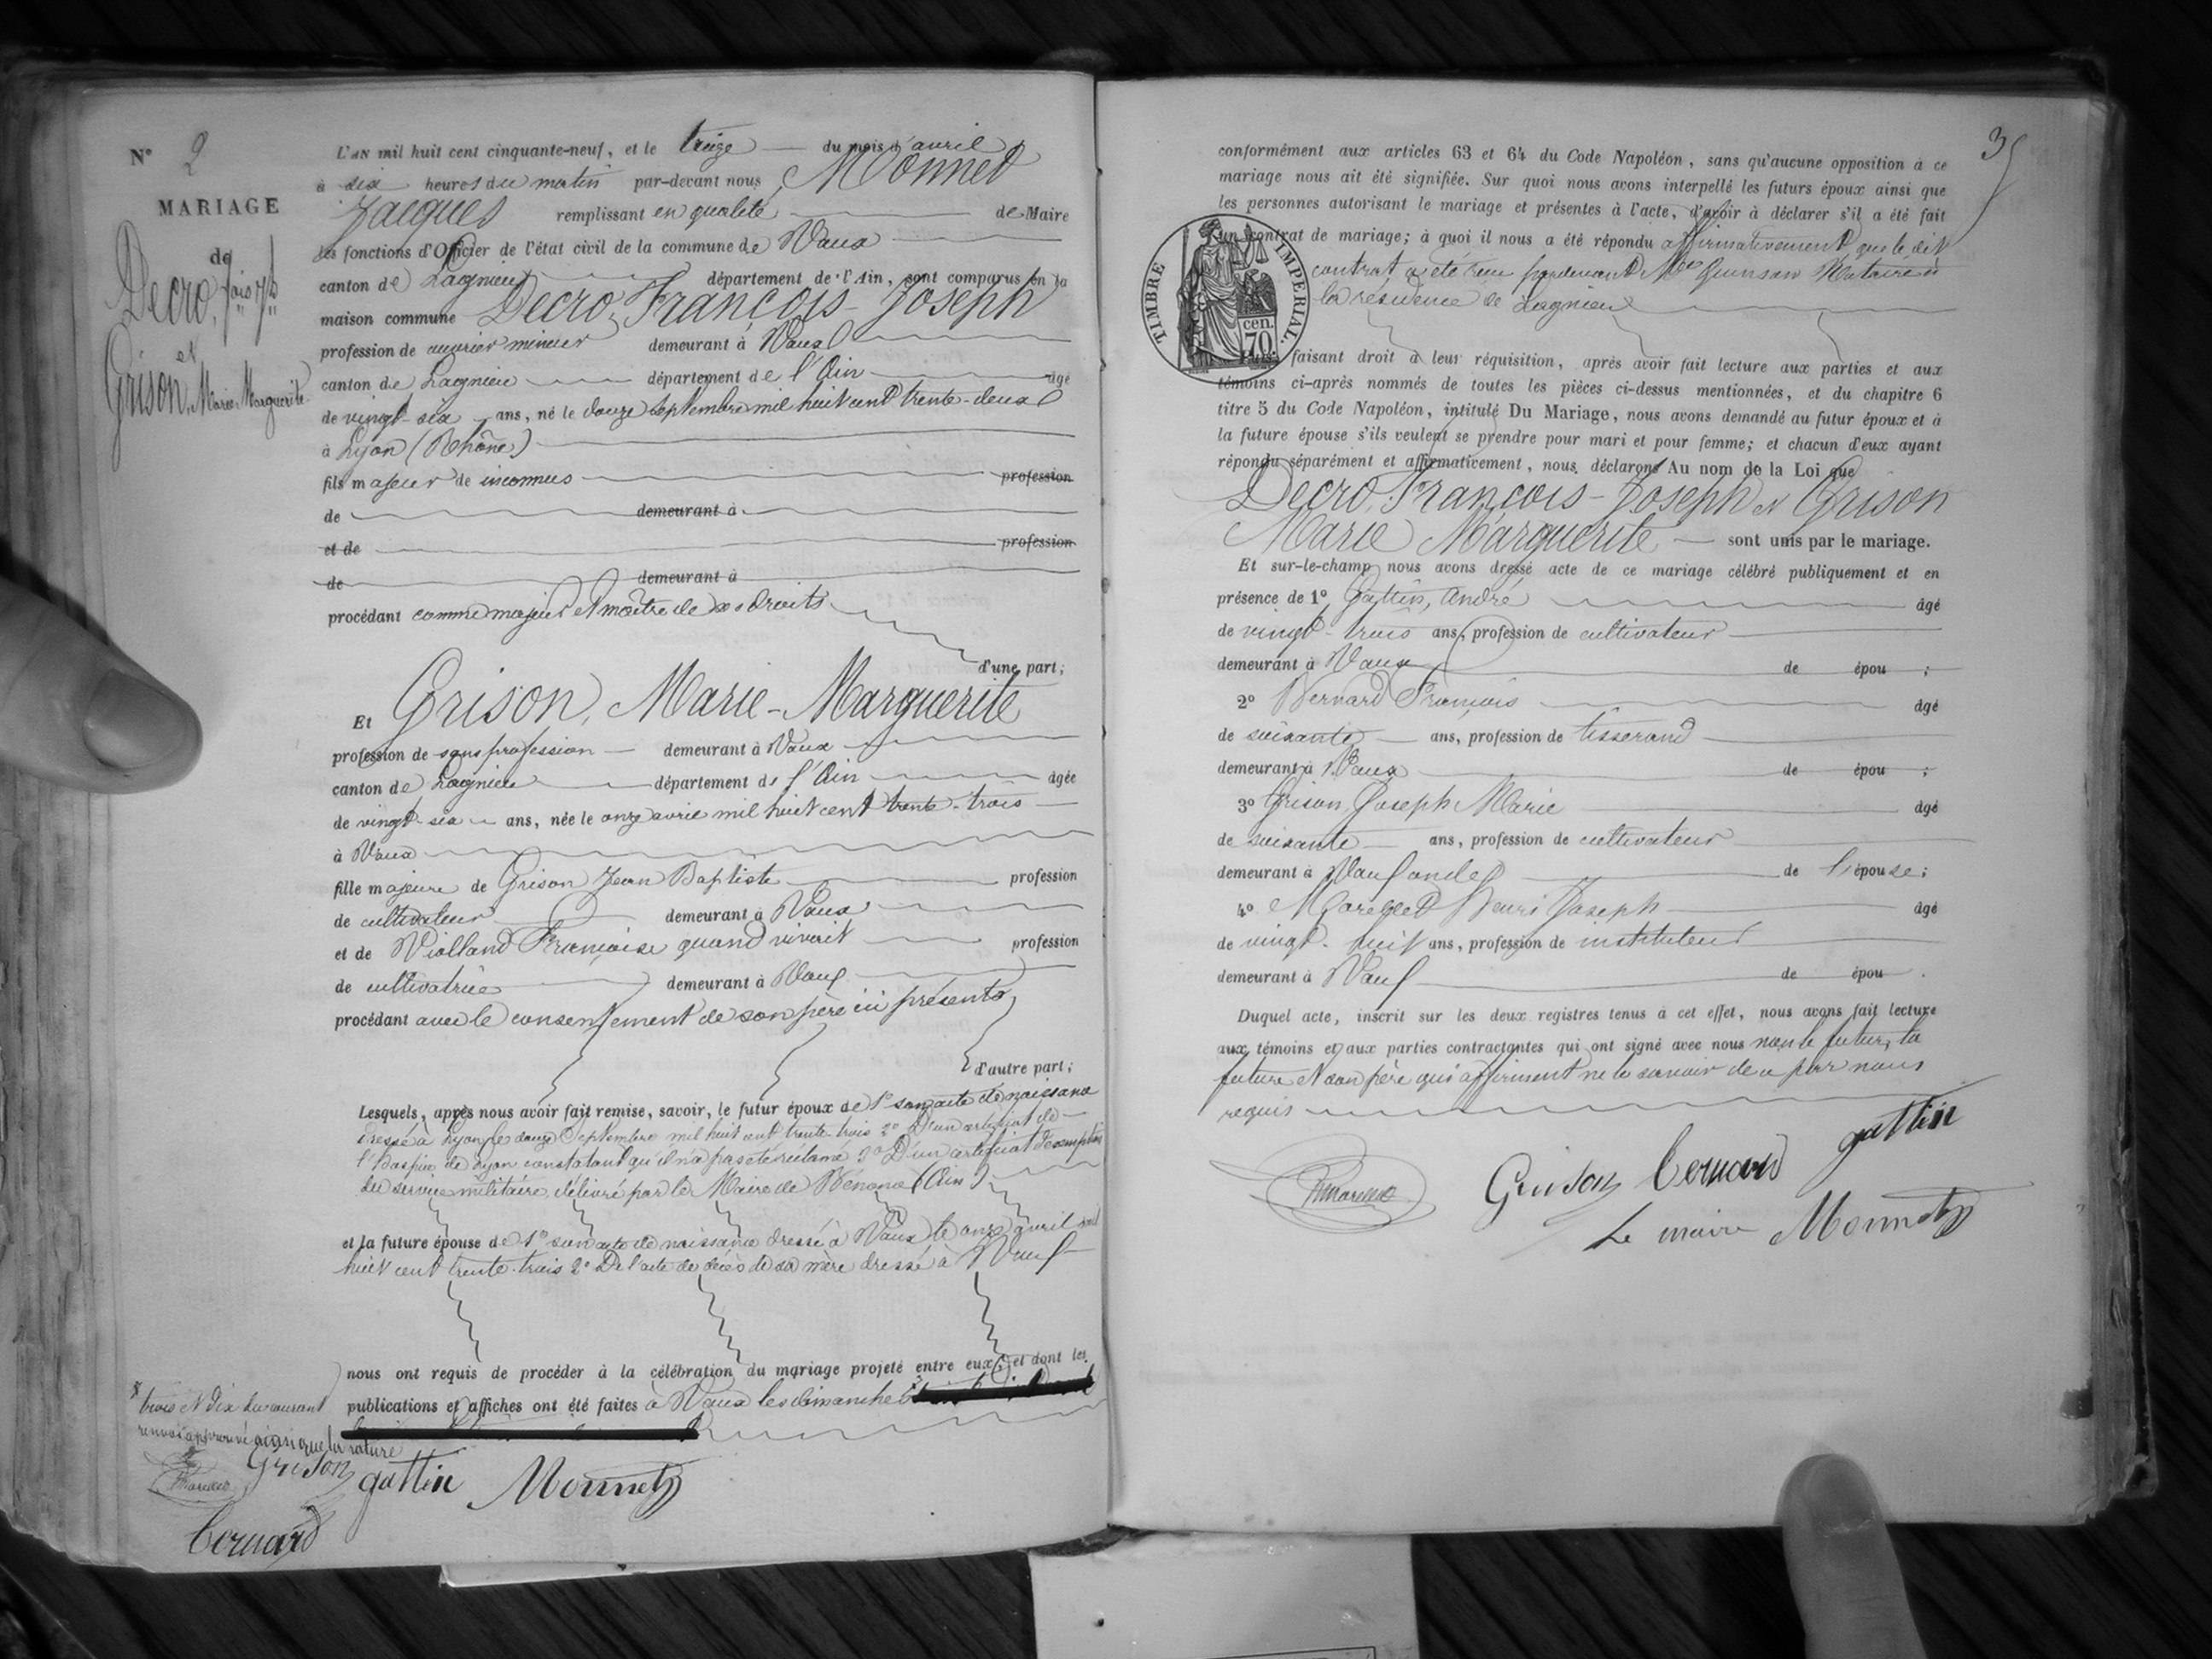 N° 2
MARIAGE
de
Decro, fois Jph
et
Grison, Marie Marguerite
L'AN mil huit cent cinquante-neuf, et le treize du mois d'avril
à six heures du matin par-devant nous Monnet
Jacques remplissant en qualité de Maire
les fonctions d'Officier de l'état civil de la commune de Vaux
canton de Lagnieu département de l'Ain, sont comparus en la
maison commune Decro, François-Joseph
profession de ouvrier mineur demeurant à Vaux
canton de Lagnieu département de l'Ain âgé
de vingt-six ans, né le douze septembre mil huit cent trente-deux
à Lyon (Rhône)
fils majeur de inconnus profession
de demeurant à
et de profession
de demeurant à
procédant comme majeur et maître de ses droits
d'une part;
Et Grison, Marie-Marguerite
profession de sans profession demeurant à Vaux
canton de Lagnieu département de l'Ain âgée
de vingt-six ans, née le onze avril mil huit cent trente-trois
à Vaux
fille majeure de Grison Jean Baptiste profession
de cultivateur demeurant à Vaux
et de Violland Françoise quand vivait profession
de cultivatrice demeurant à Vaux
procédant avec le consentement de son père ici présent
d'autre part;
Lesquels, après nous avoir fait remise, savoir, le futur époux de 1° son acte de naissance
dressé à Lyon le douze Septembre mil huit cent trente trois 2° D'un certificat de
l'hospice de Lyon constatant qu'il n'a pas été réclamé 3° D'un certificat d'exemption
du service militaire délivré par le Maire de Bénonce (Ain)
et la future épouse de 1° son acte de naissance dressé à Vaux le onze avril mil
huit cent trente-trois 2° De l'acte de décès de sa mère dressé à Vaux
nous ont requis de procéder à la célébration du mariage projeté entre eux, et dont les
publications et affiches ont été faites à Vaux les dimanches
trois et dix du courant
renvoi approuvé ainsi que la rature
Grison gattin Monnet
bernard
35
conformément aux articles 63 et 64 du Code Napoléon, sans qu'aucune opposition à ce
mariage nous ait été signifiée. Sur quoi nous avons interpellé les futurs époux ainsi que
les personnes autorisant le mariage et présentes à l'acte, d'avoir à déclarer s'il a été fait
un contrat de mariage; à quoi il nous a été répondu affirmativement que le dit
contrat a été reçu pardevant Me Quinson Notaire à
la résidence de Lagnieu
TIMBRE IMPERIAL
70 cen.
Puis, faisant droit à leur réquisition, après avoir fait lecture aux parties et aux
témoins ci-après nommés de toutes les pièces ci-dessus mentionnées, et du chapitre 6
titre 5 du Code Napoléon, intitulé Du Mariage, nous avons demandé au futur époux et à
la future épouse s'ils veulent se prendre pour mari et pour femme; et chacun d'eux ayant
répondu séparément et affirmativement, nous déclarons Au nom de la Loi que
Decro, François-Joseph et Grison
Marie Marguerite sont unis par le mariage.
Et sur-le-champ nous avons dressé acte de ce mariage célébré publiquement et en
présence de 1° Gattin, André âgé
de vingt-trois ans, profession de cultivateur
demeurant à Vaux de épou ;
2° Bernard François âgé
de soixante ans, profession de tisserand
demeurant à Vaux de épou ;
3° Grison Joseph Marie âgé
de soixante ans, profession de cultivateur
demeurant à Vaux oncle de l'épouse;
4° Henri Joseph âgé
de vingt-huit ans, profession de instituteur
demeurant à Vaux de épou .
Duquel acte, inscrit sur les deux registres tenus à cet effet, nous avons fait lecture
aux témoins et aux parties contractantes qui ont signé avec nous non le futur, la
future et son père qui affirment ne le savoir de ce par nous
requis
gattin
Grison bernard
Le maire Monnet